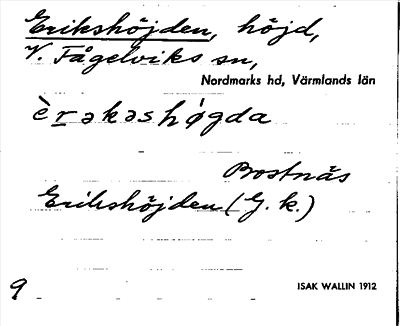 Erikshöjden, höjd,
V. Fågelviks sn,
Nordmarks hd, Värmlands län
èrəkəshǿgda
Bostnäs
Erikshöjden (G. k.)
9
ISAK WALLIN 1912